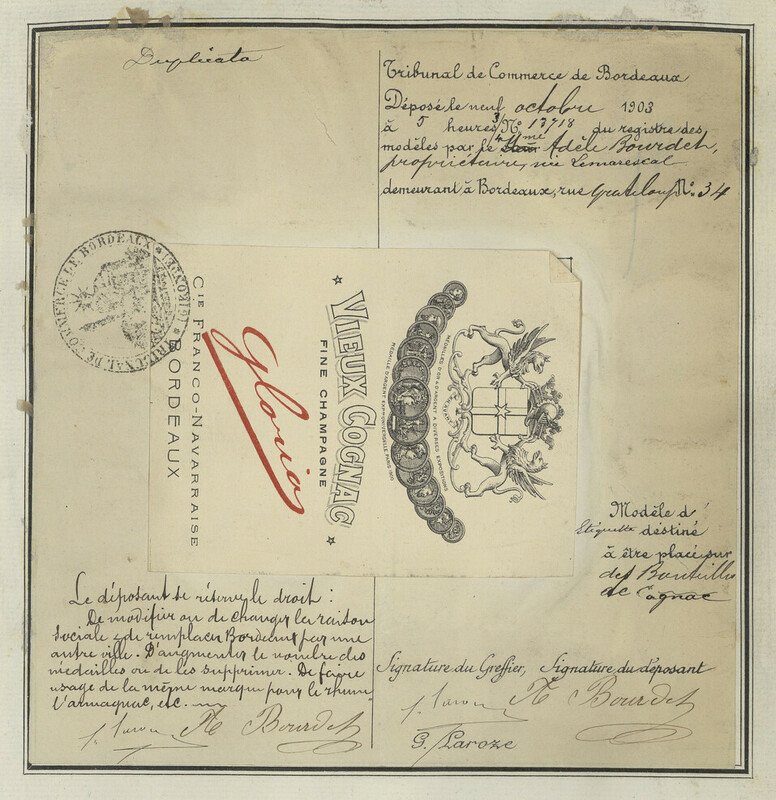 Duplicata
Tribunal de Commerce de Bordeaux
Déposé le neuf octobre 1903
à 5 heures, N° 13718 du registre des
modèles par Mme Adèle Bourdet,
propriétaire,
demeurant à Bordeaux, rue Grateloup N° 34
TRIBUNAL DE COMMERCE DE BORDEAUX
(GIRONDE)
MÉDAILLES D'OR & D'ARGENT A DIVERSES EXPOSITIONS
MÉDAILLE D'ARGENT EXPON UNIVERSELLE PARIS 1900
VIEUX COGNAC
FINE CHAMPAGNE
Gloria
CIE FRANCO-NAVARRAISE
BORDEAUX
Modèle d'
Etiquette déstiné
à être placé sur
des Bouteilles
de Cognac
Le déposant se réserve le droit :
De modifier ou de changer la raison
sociale & de remplacer Bordeaux par une
autre ville. D'augmenter le nombre des
médailles ou de les supprimer. De faire
usage de la même marque pour le rhum
l'armagnac, etc.
Bourdet
Signature du Greffier, Signature du déposant
Bourdet
G. Laroze